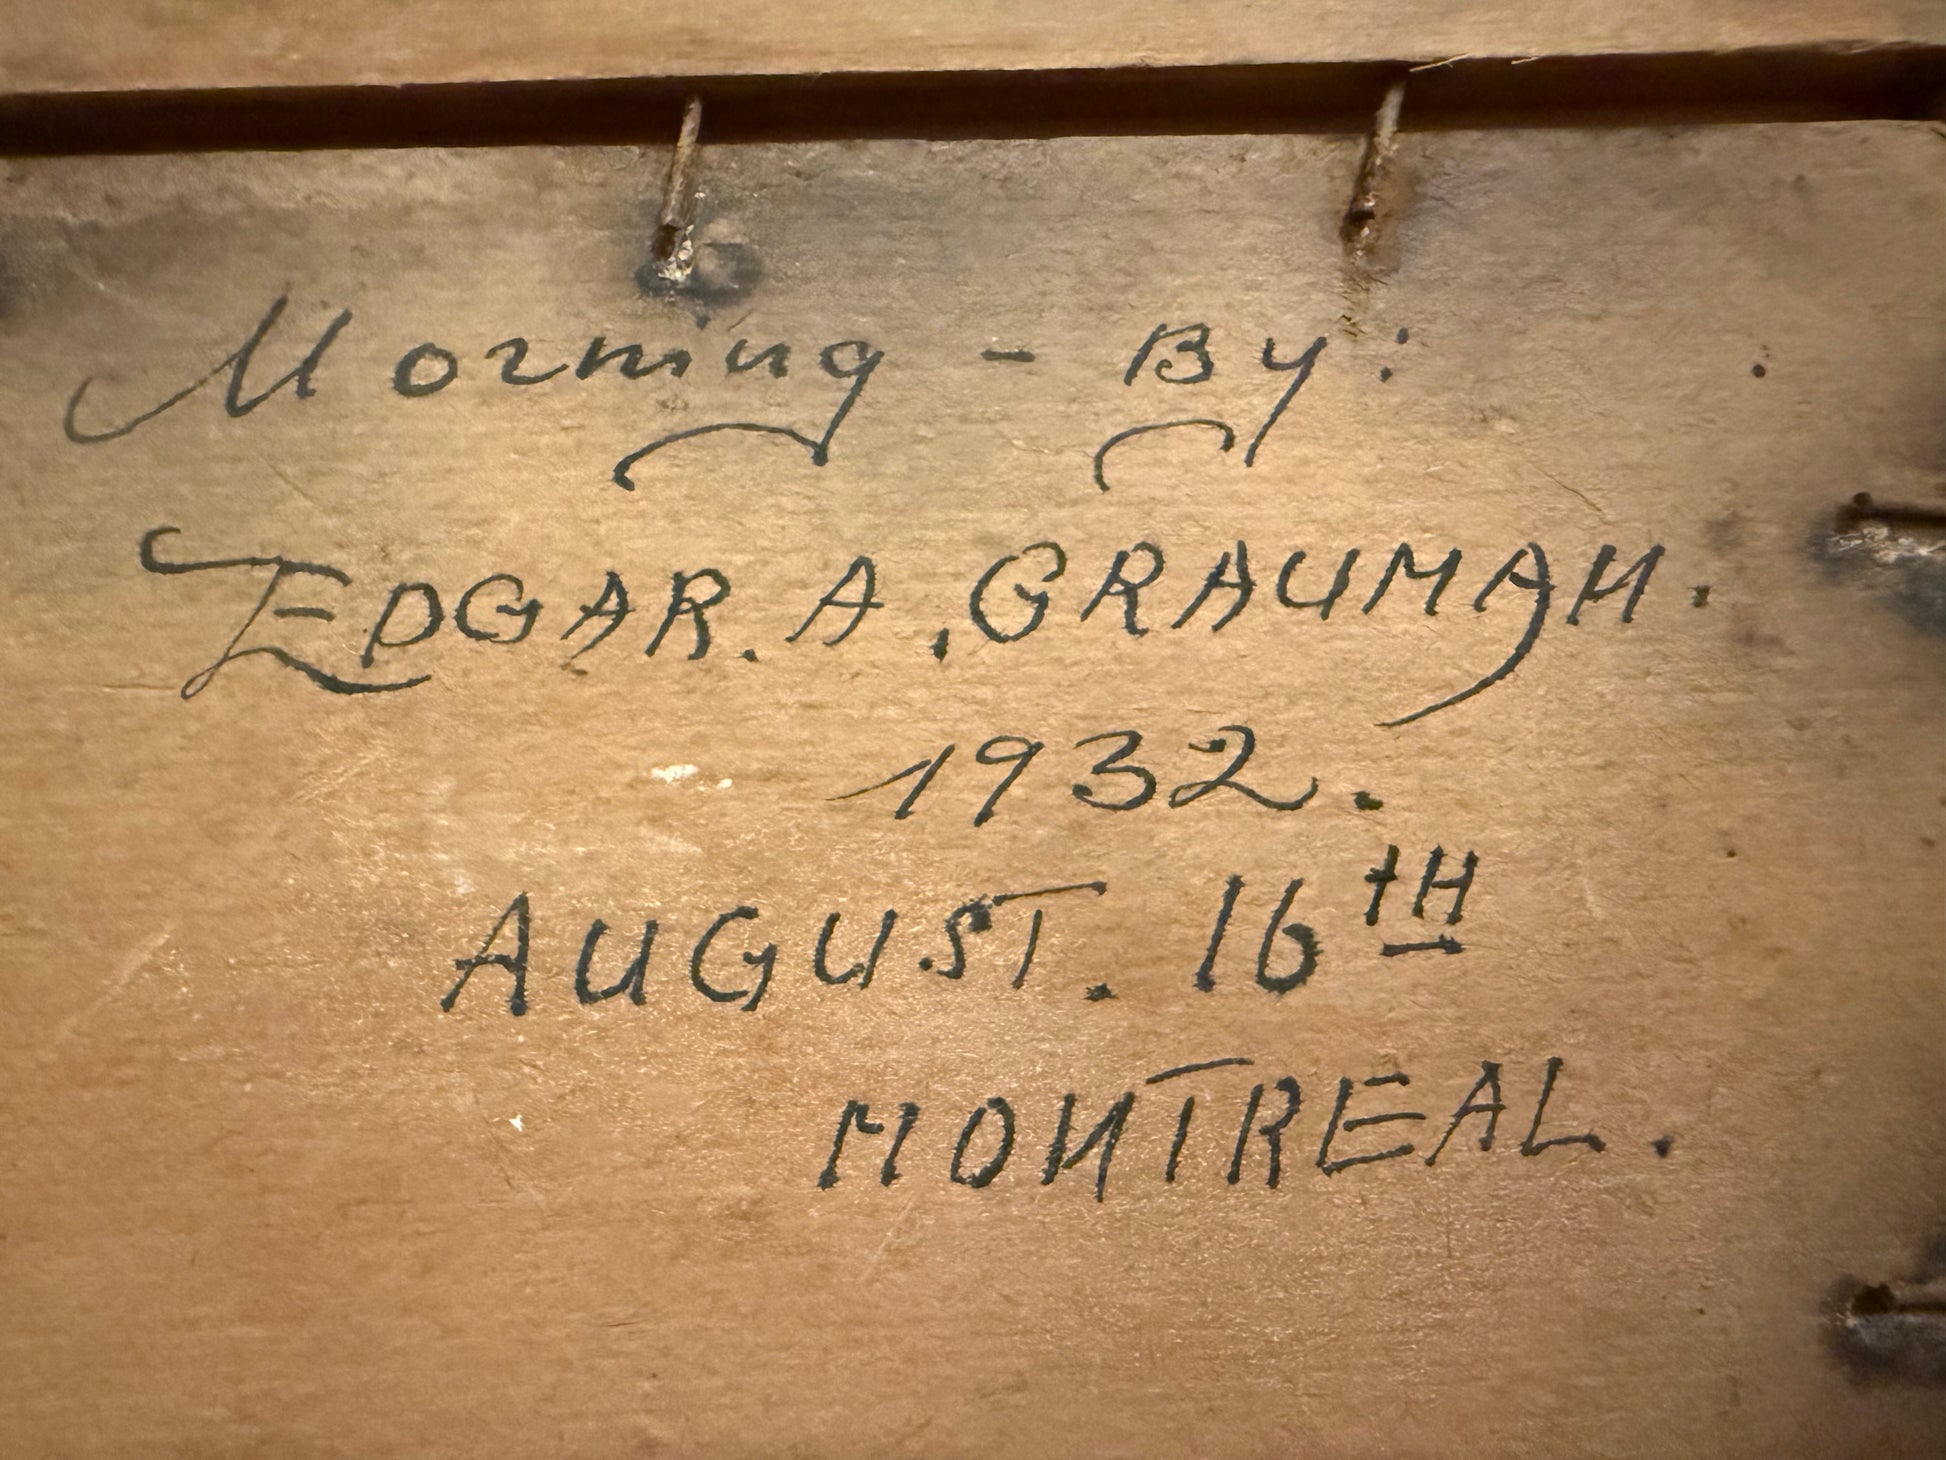 Morning - By:
EDGAR. A. GRAUMAN.
1932.
AUGUST. 16tH
MONTREAL.